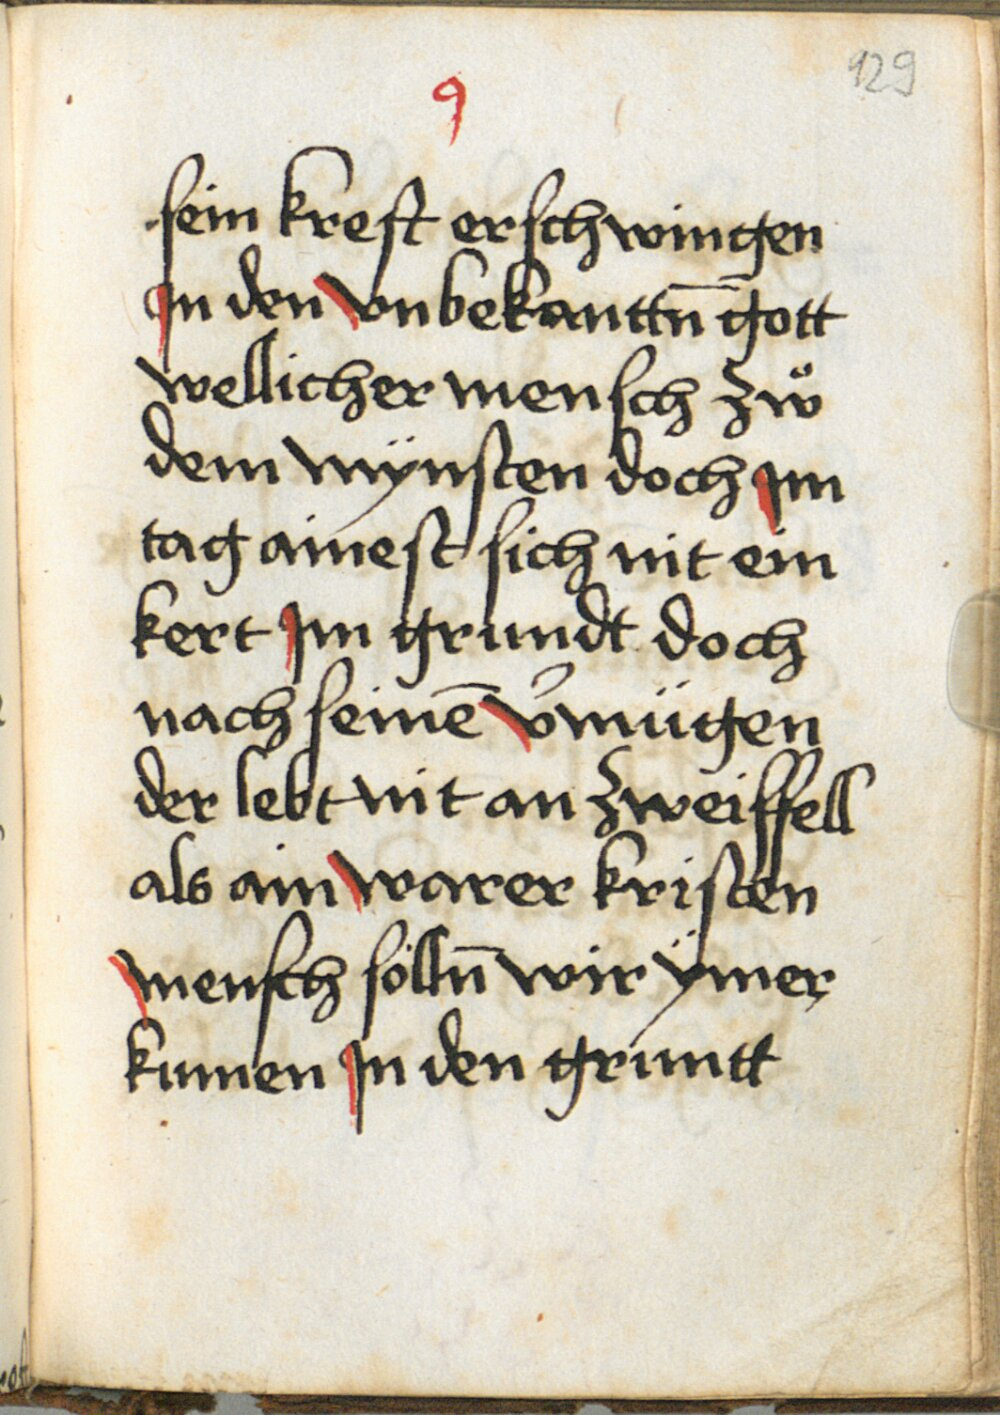 129
9
sein kreft erschwingen
In den vnbekanttn̄ gott
wellicher mensch zwͦ
dem mÿnsten doch Im
tag ainest sich nit ein
kert Im grundt doch
nach seinē v̾mügen
der lebt nit an zweiffell
als ain warer kristen
mensch sölln̄ wir ÿmer
kumen In den gruntt